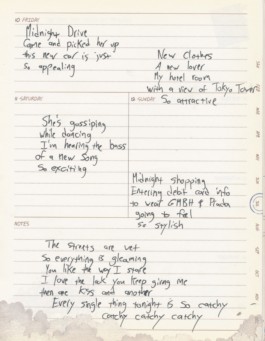 10 FRIDAY
Midnight Drive
Come and picked her up
this new car is just
so appealing
New Clothes
A new lover
My hotel room
with a view of Tokyo Tower
So attractive
SATURDAY
SUNDAY
She's gossiping
while dancing
I'm hearing the bass
of a new song
So exciting
Midnight shopping
Entering debit card info
to wear GMBH & Prada
going to feel
so stylish
NOTES
The streets are wet
So everything is gleaming
You like the way I stare
I love the look you keep giving me
then one kiss and another
Every single thing tonight is so catchy
catchy catchy catchy